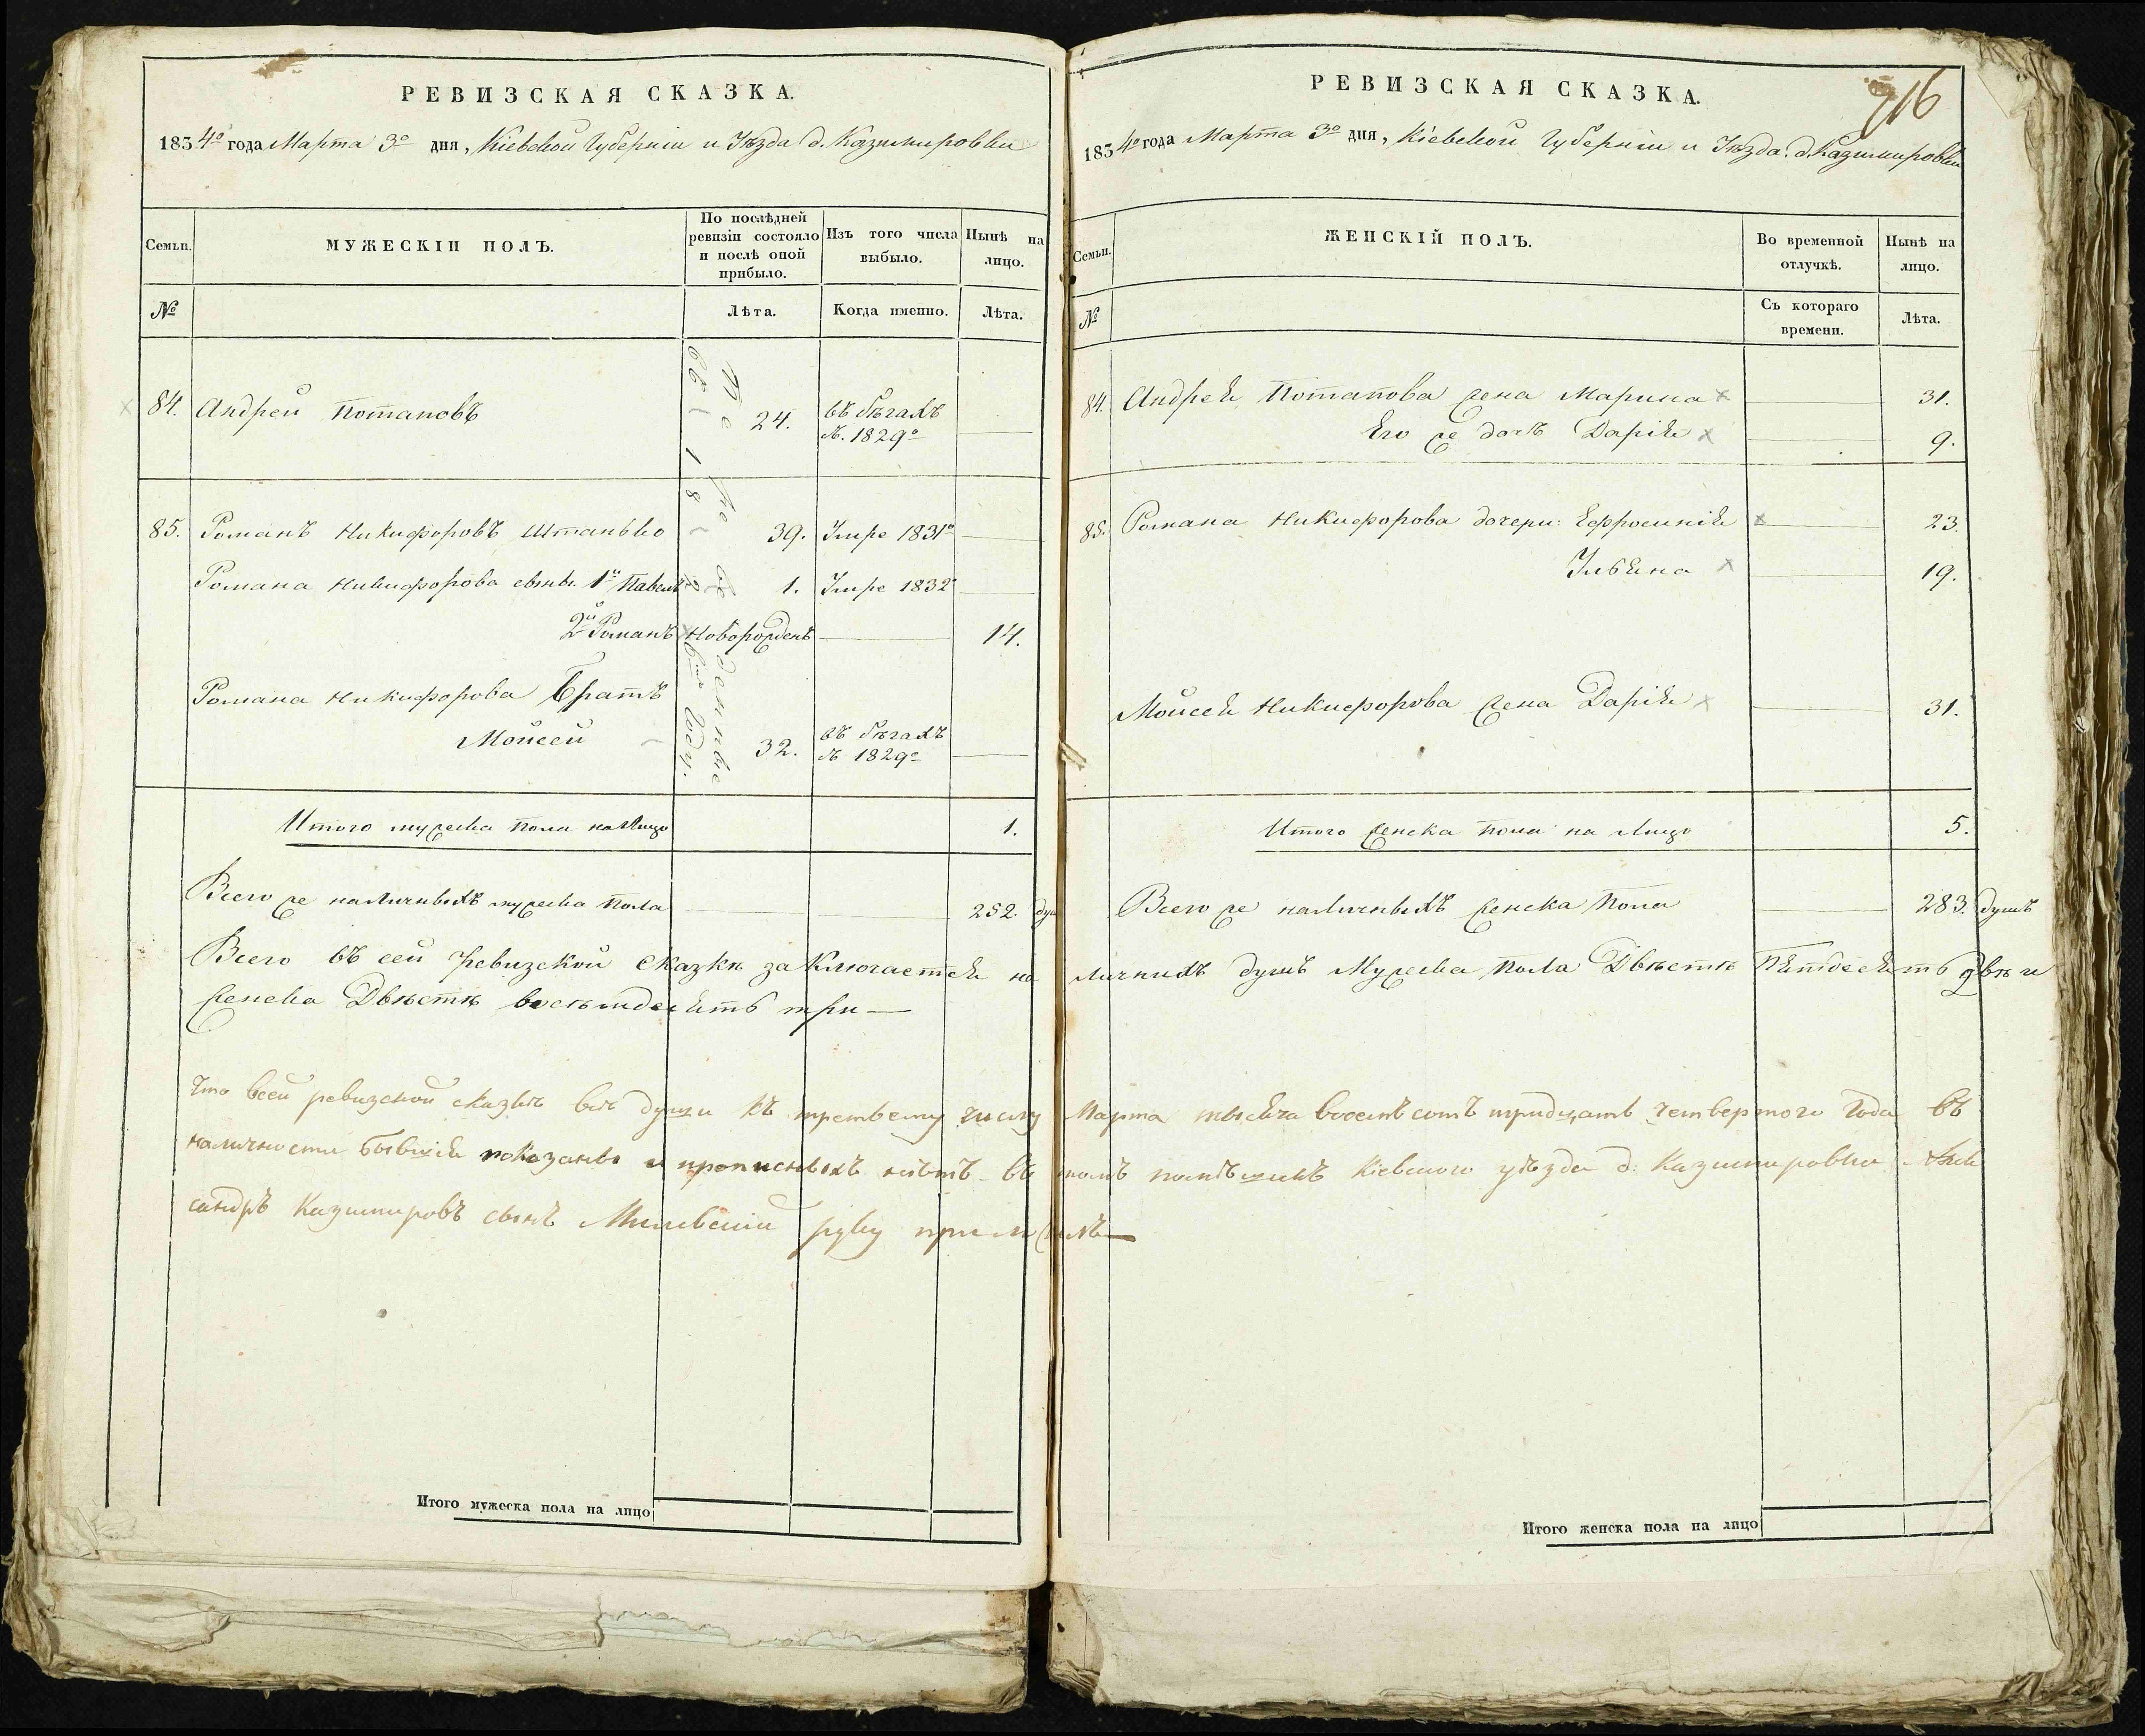 РЕВИЗСКАЯ СКАЗКА.
1834го года Марта 3го дня, Кіевской Губерніи и Уѣзда д. Казимировки
Семьи.
МУЖЕСКІИ ПОЛЪ.
По послѣдней ревизіи состояло и послѣ оной прибыло.
Изъ того числа выбыло.
Нынѣ на лицо.
№
Лѣта.
Когда именно.
Лѣта.
84. Андрей Потаповъ 24. въ бѣгахъ
съ 1829го
85. Романъ Никифоровъ Штанько 39. Умре 1831го
Романа Никифорова сынъ 1й Павелъ 1. Умре 1832
2й Романъ Новорожденъ 14.
Романа Никифорова Братъ
Мойсей 32. въ бѣгахъ
съ 1829го
Итого мужеска пола на лицо 1.
Всего же наличныхъ мужеска пола 252. душ
РЕВИЗСКАЯ СКАЗКА.
716
1834го года Марта 3го дня, Кіевской Губерніи и Уѣзда д. Казимировки
Семьи.
ЖЕНСКІЙ ПОЛЪ.
Во временной отлучкѣ.
Нынѣ на лицо.
№
Съ котораго времени.
Лѣта.
84. Андрея Потапова жена Марина 31.
Его же дочь Дарія 9.
85. Романа Никифорова дочери: Ефросинія 23.
Ульяна 19.
Мойсея Никифорова жена Дарія 31.
Итого женска пола на лицо 5.
Всего же наличныхъ женска пола 283. душъ
Всего въ сей ревизской сказкѣ заключается наличнихъ душъ Мужеска пола Двѣстѣ Пятдесятъ двѣ и
женска Двѣстѣ восемдесятъ три
Что всей ревизской сказкѣ всѣ души къ третьему числу Марта тысяча восемъ сотъ тридцать четвертого Года въ
наличности бывшія показаны и прописныхъ нѣтъ въ томъ помѣщикъ Кіевского уѣзда д. Казимировки Алек
сандръ Казимировъ сынъ руку приложилъ
Итого мужеска пола на лицо
Итого женска пола на лицо